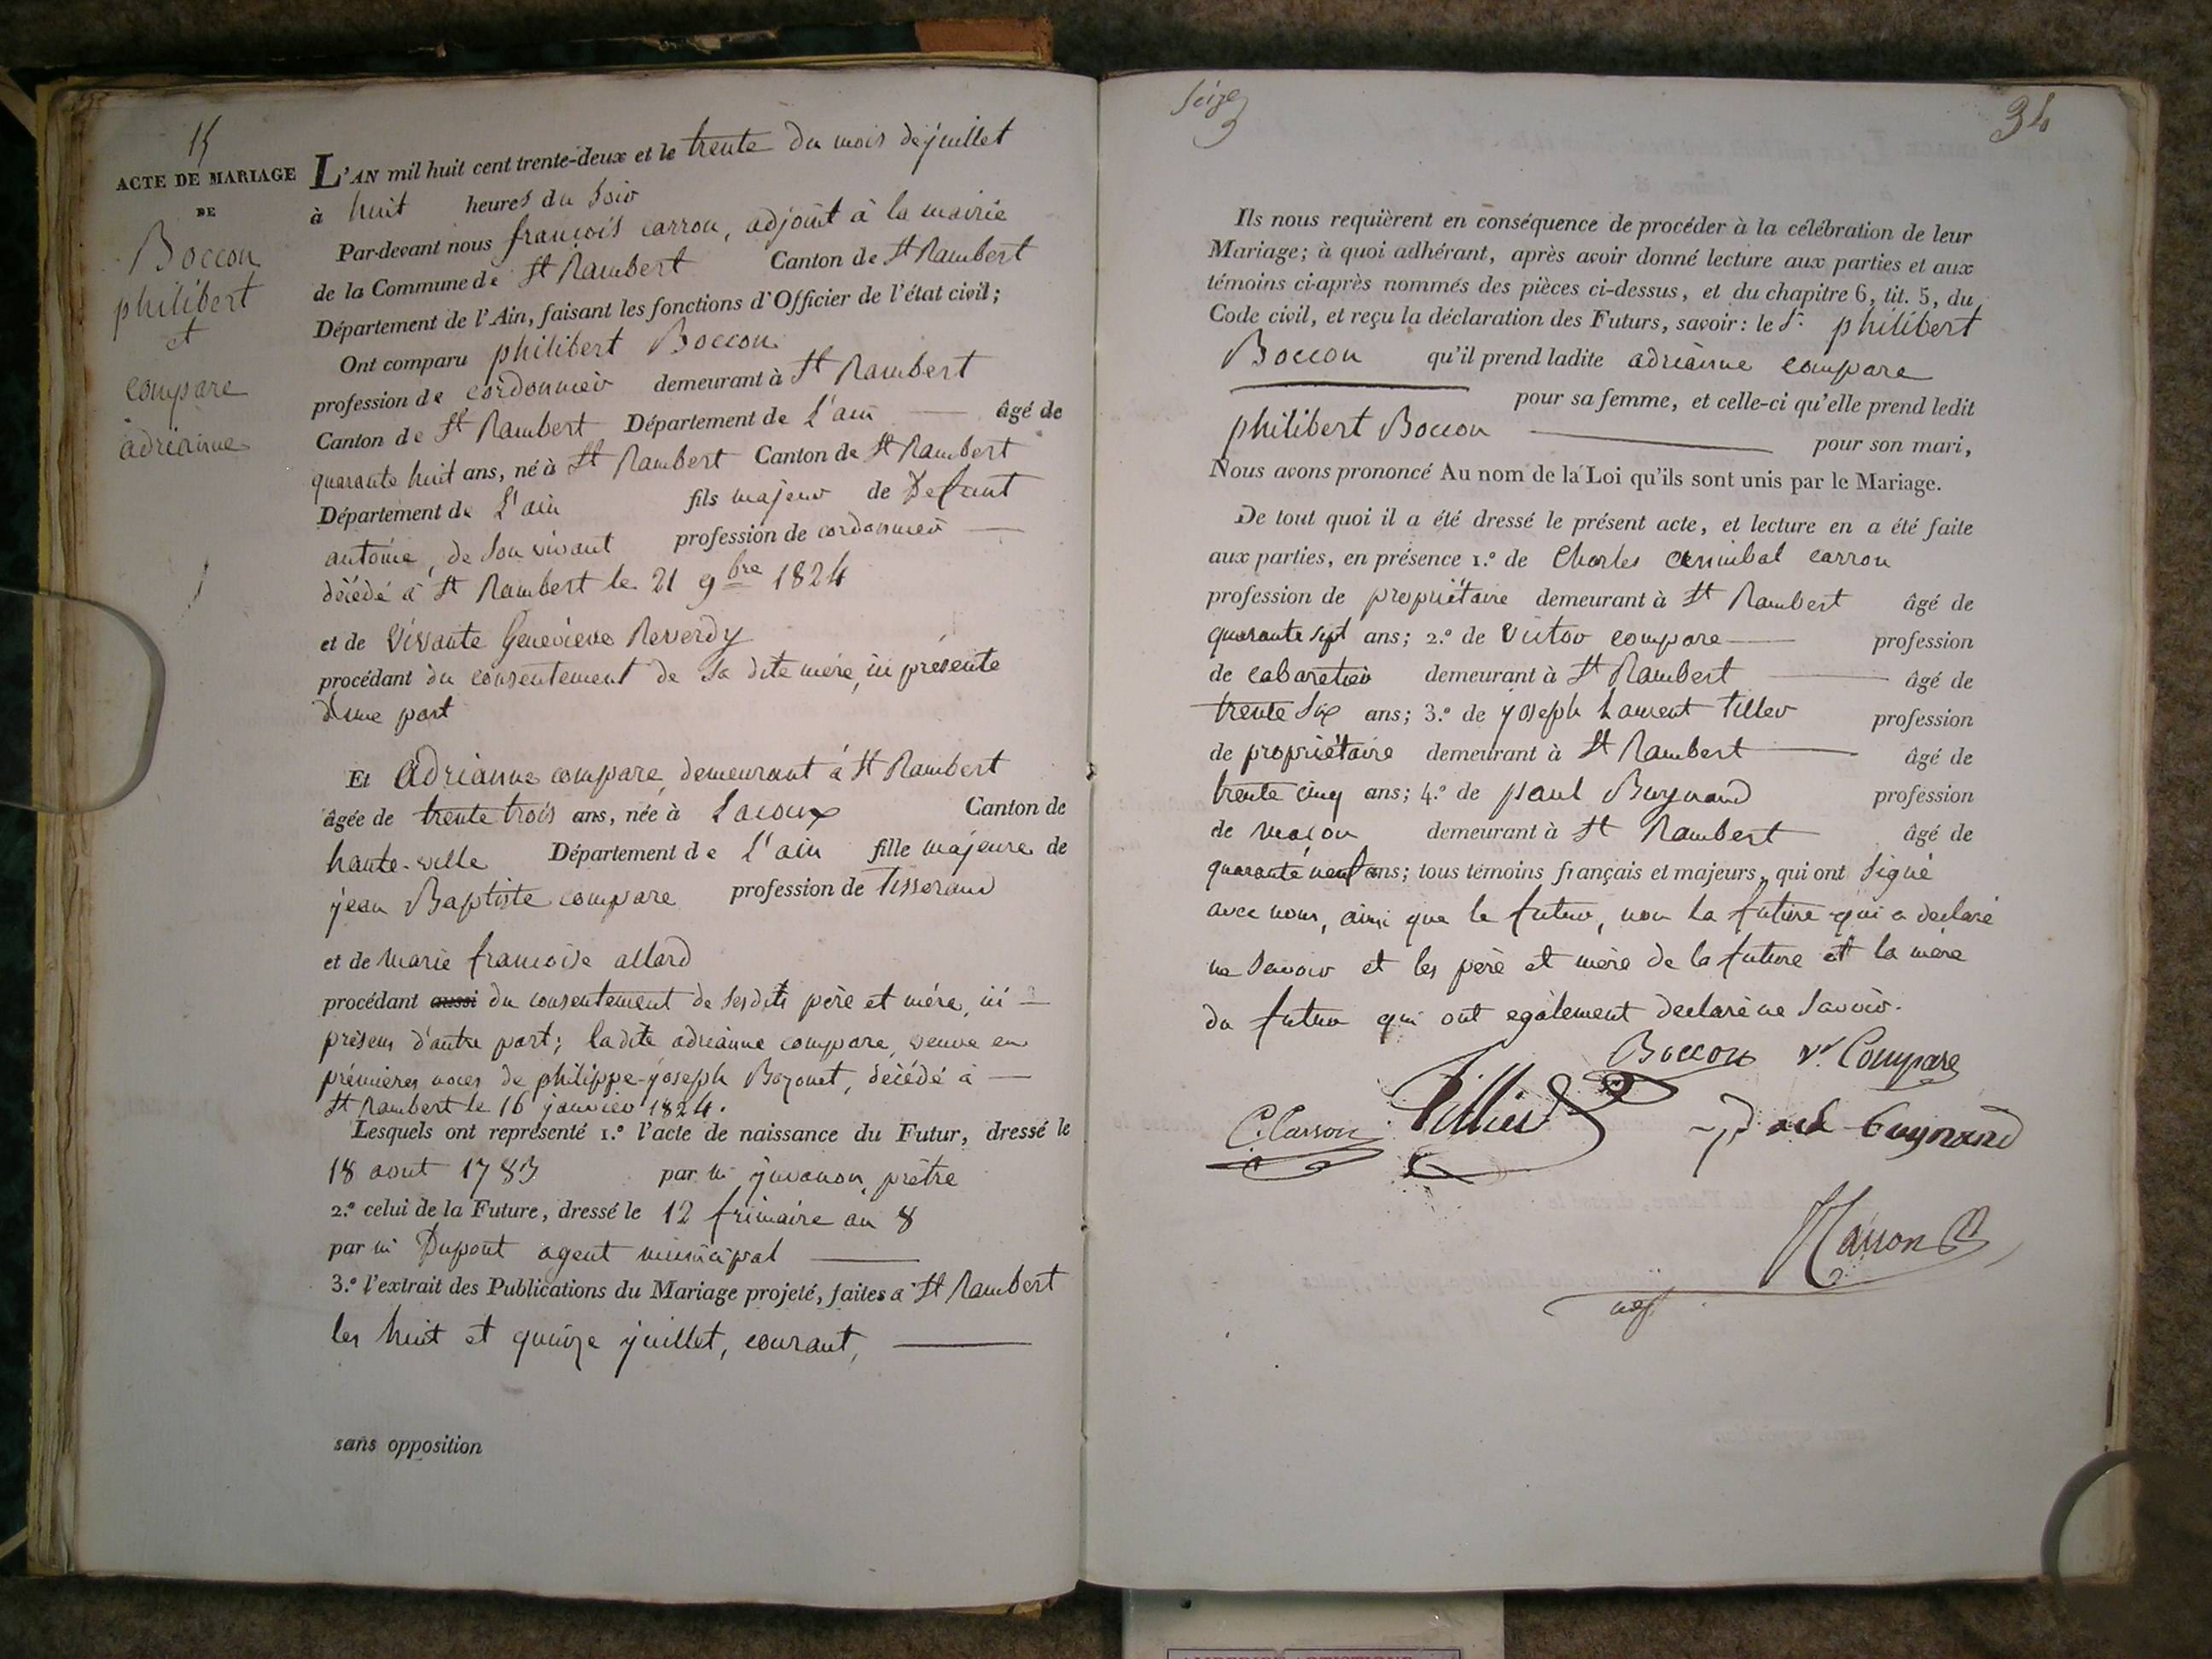 15
ACTE DE MARIAGE
DE
Boccon
philibert
et
compare
adrianne
L'AN mil huit cent trente-deux et le trente du mois de juillet
à huit heures du soir
Par-devant nous françois carron, adjoint à la mairie
de la Commune de St Rambert Canton de St Rambert
Département de l'Ain, faisant les fonctions d'Officier de l'état civil;
Ont comparu philibert Boccon
profession de cordonnier demeurant à St Rambert
Canton de St Rambert Département de L'ain âgé de
quarante huit ans, né à St Rambert Canton de St Rambert
Département de L'ain fils majeur de Defunt
antoine, de son vivant profession de cordonnier
décédé à St Rambert le 21 9bre 1824
et de vivante Genevieve Reverdy
procédant du consentement de sa dite mère, ici présente
d'une part
Et adrianne compare, demeurant à St Rambert
âgée de trente trois ans, née à Lacoux Canton de
haute-ville Département de L'ain fille majeure de
jean Baptiste compare profession de Tisserand
et de marie francoise allard
procédant aussi du consentement de sesdits père et mère, ici
présens d'autre part; ladite adrianne compare, veuve en
prémières noces de philippe-joseph Bozonet, décédé à
St Rambert le 16 janvier 1824.
Lesquels ont représenté 1.º l'acte de naissance du Futur, dressé le
18 aout 1783 par mi juvanon, prêtre
2.º celui de la Future, dressé le 12 frimaire an 8
par mi Dupont agent municipal
3.º l'extrait des Publications du Mariage projeté, faites à St Rambert
les huit et quinze juillet, courant,
sans opposition
seize
34
Ils nous requièrent en conséquence de procéder à la célébration de leur
Mariage; à quoi adhérant, après avoir donné lecture aux parties et aux
témoins ci-après nommés des pièces ci-dessus, et du chapitre 6, tit. 5, du
Code civil, et reçu la déclaration des Futurs, savoir: le Sr. philibert
Boccon qu'il prend ladite adrianne compare
pour sa femme, et celle-ci qu'elle prend ledit
philibert Boccon pour son mari,
Nous avons prononcé Au nom de la Loi qu'ils sont unis par le Mariage.
De tout quoi il a été dressé le présent acte, et lecture en a été faite
aux parties, en présence 1.º de Charles annibal carron
profession de propriétaire demeurant à St Rambert âgé de
quarante sept ans; 2.º de victor compare profession
de cabaretier demeurant à St Rambert âgé de
trente six ans; 3.º de joseph Laurent tiller profession
de propriétaire demeurant à St Rambert âgé de
trente cinq ans; 4.º de paul Buynand profession
de maçon demeurant à St Rambert âgé de
quarante neuf ans; tous témoins français et majeurs, qui ont signé
avec nous, ainsi que le futur, non la future qui a declaré
ne savoir et les père et mère de la future et la mère
du futur qui ont egalement declaré ne savoir.
Boccon vr Compare
C. Carron Tillier paul Buynand
Carron